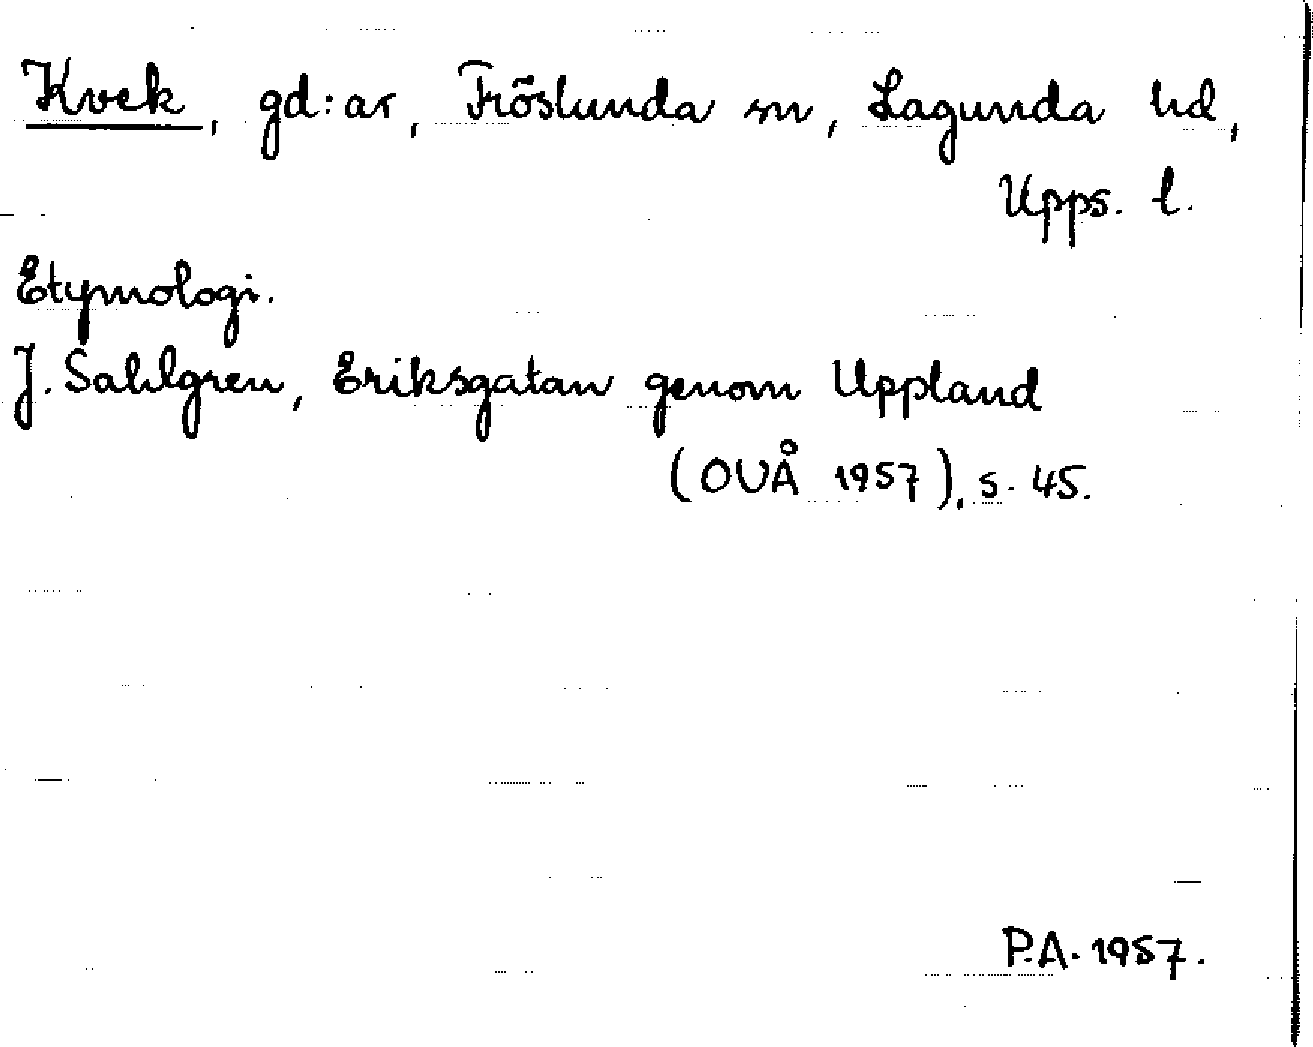 Kvek, gd:ar, Fröslunda sn, Lagunda hd,
Upps. l.
Etymologi.
J. Sahlgren, Eriksgatan genom Uppland
(OUÅ 1957), s. 45.
P.A. 1957.